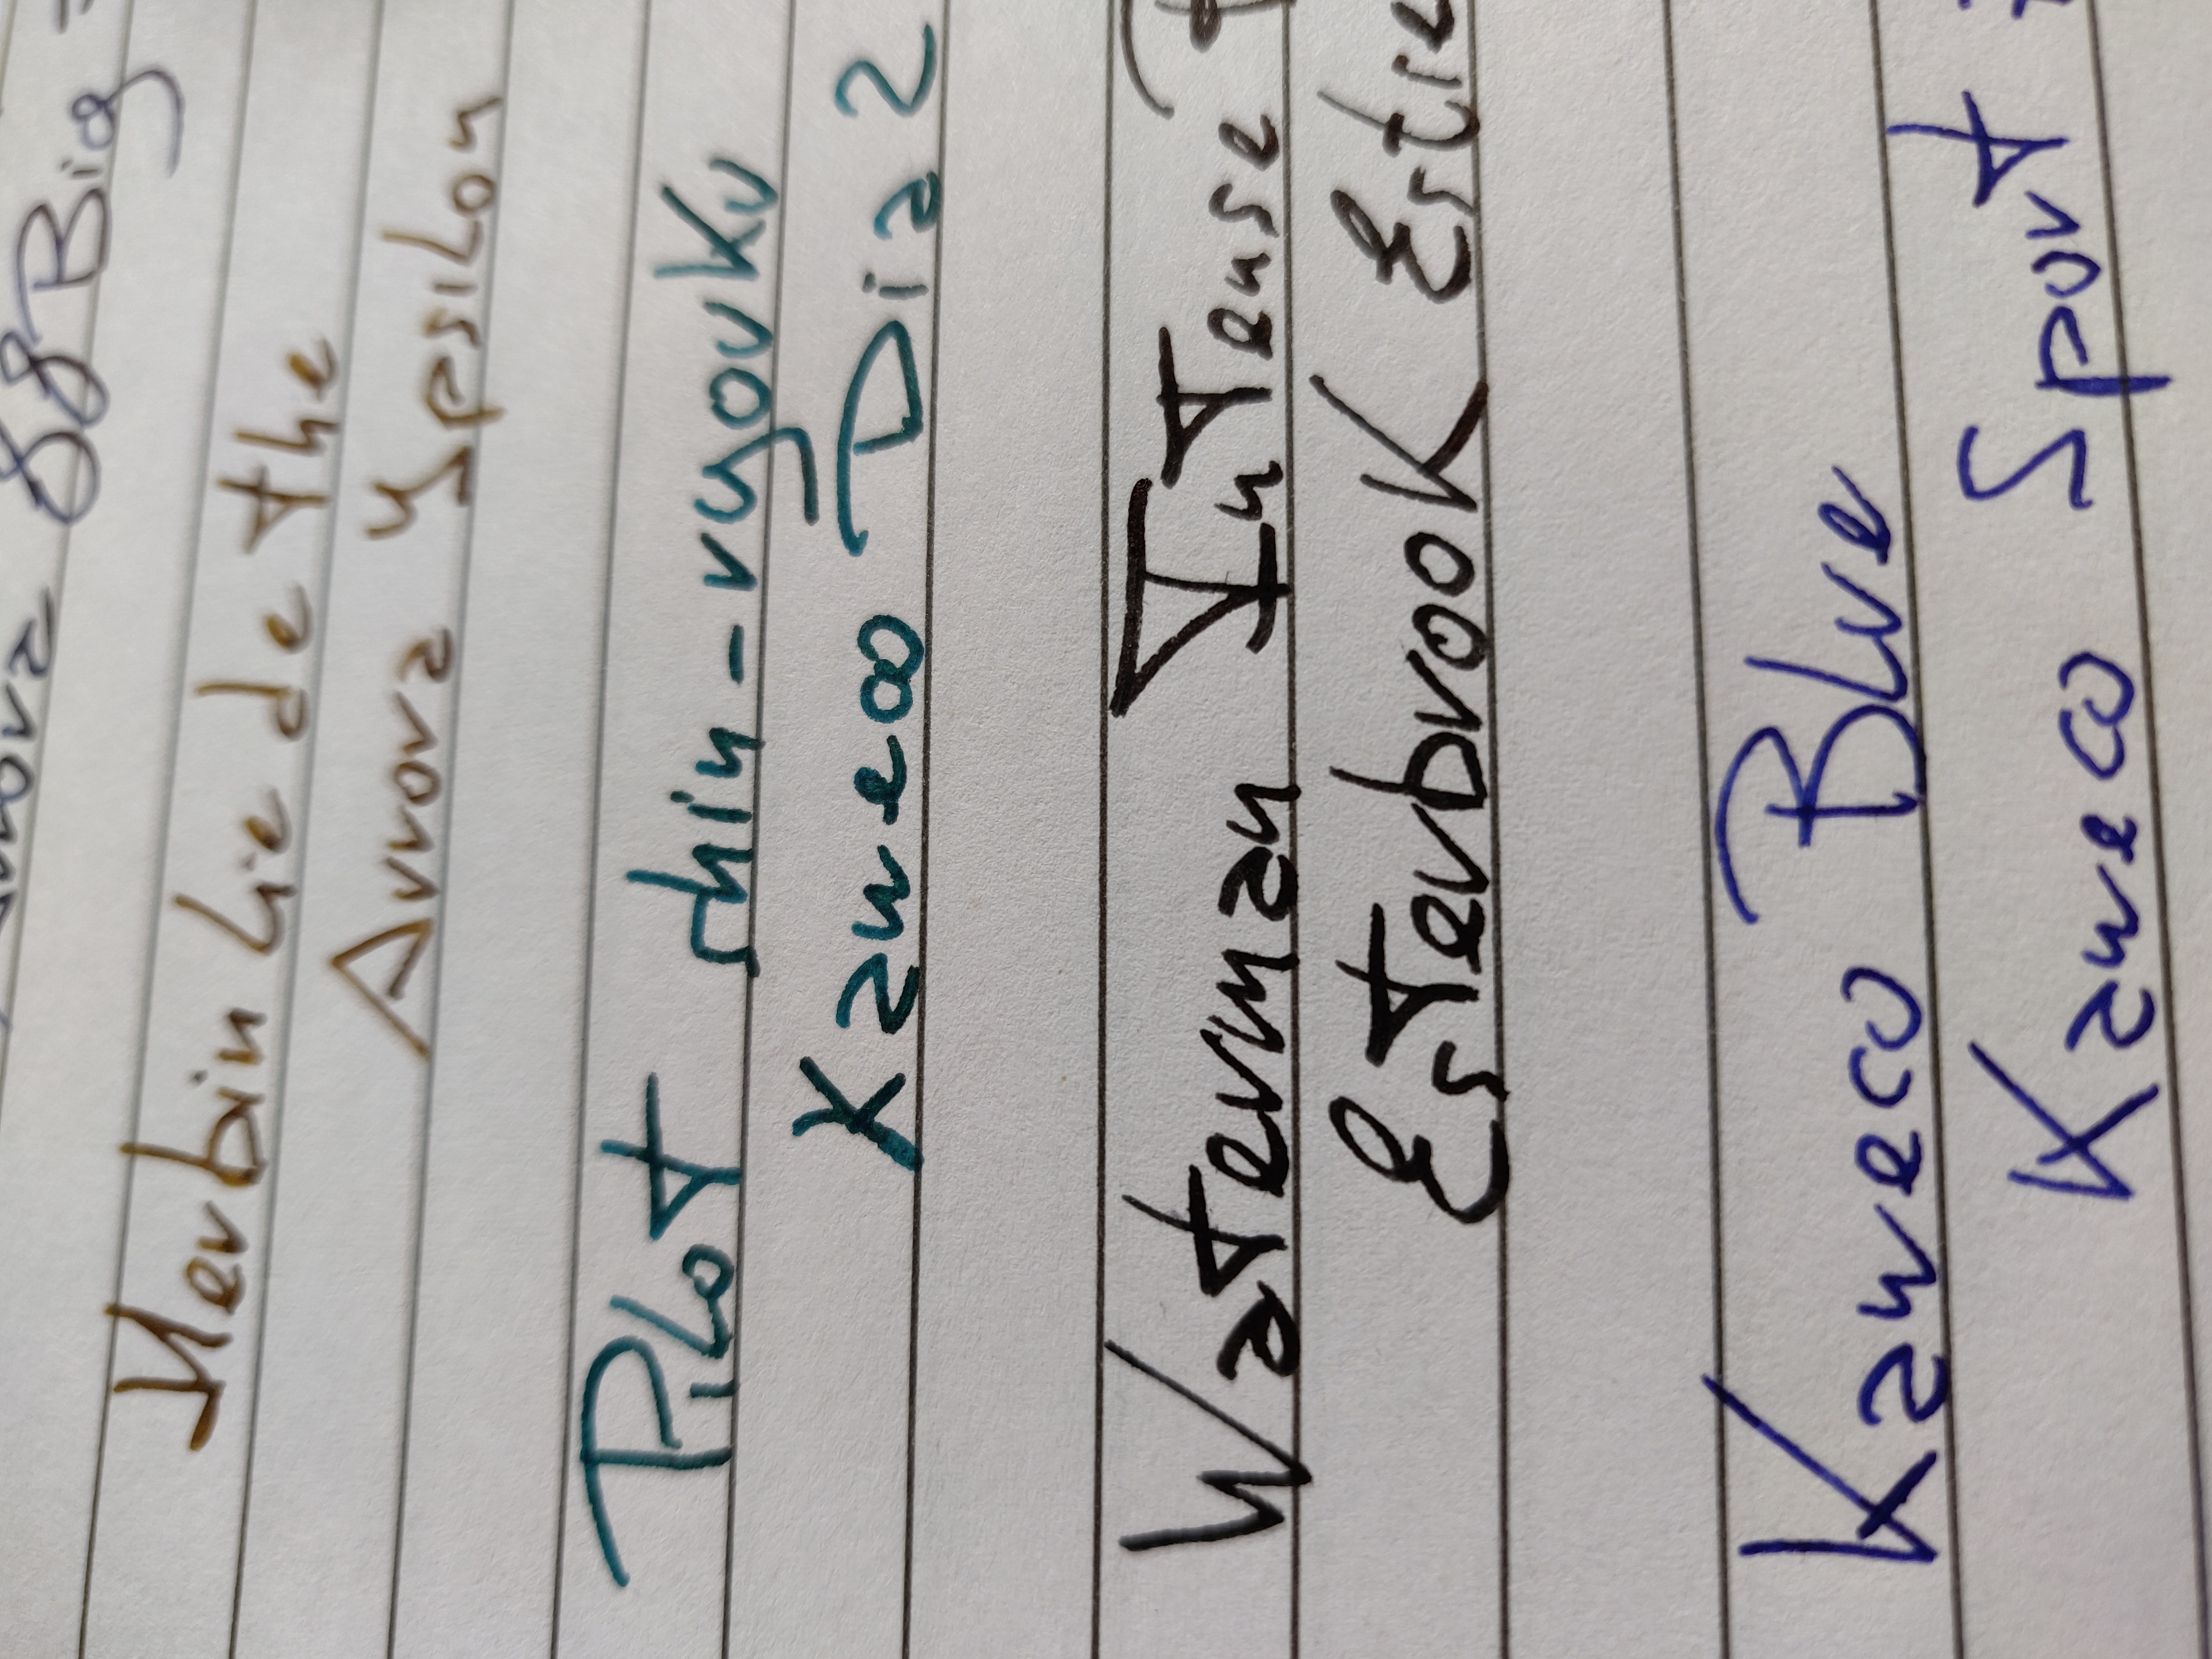 Aurora 88 Big
Herbin Lie de thé
Aurora Ypsilon
Pilot shin-ryoku
Kaweco Dia 2
Waterman Intense
Esterbrook Estie
Kaweco Blue
Kaweco Sport